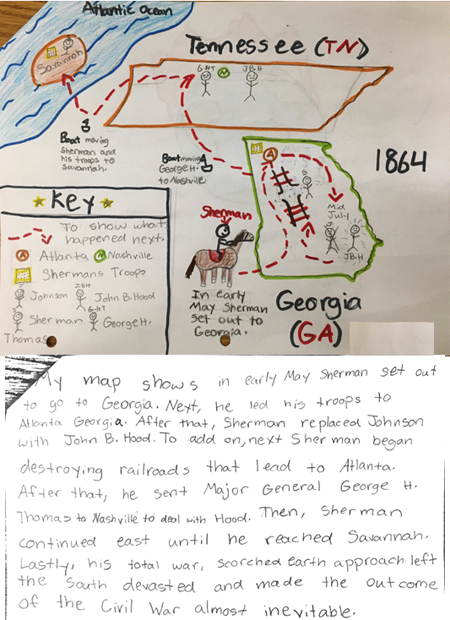 Atlantic Ocean
Savannah
Tennessee (TN)
G.H.T
N
J.B.H
Boat moving
Sherman and
his troops to
Savannah.
Boat moving
George H.
to Nashville
1864
Key
To show what
happened next.
A Atlanta N Nashville
Shermans Troops
Johnson
J.B.H
John B. Hood
Sherman
G.H.T
George H.
Thomas
Sherman
In early
May Sherman
set out to
Georgia.
A
Mid
July
J
J.B.H
Georgia
(GA)
My map shows in early May Sherman set out
to go to Georgia. Next, he led his troops to
Atlanta Georgia. After that, Sherman replaced Johnson
with John B. Hood. To add on, next Sherman began
destroying railroads that lead to Atlanta.
After that, he sent Major General George H.
Thomas to Nashville to deal with Hood. Then, Sherman
continued east until he reached Savannah.
Lastly, his total war, scorched earth approach left
the South devasted and made the outcome
of the Civil War almost inevitable.